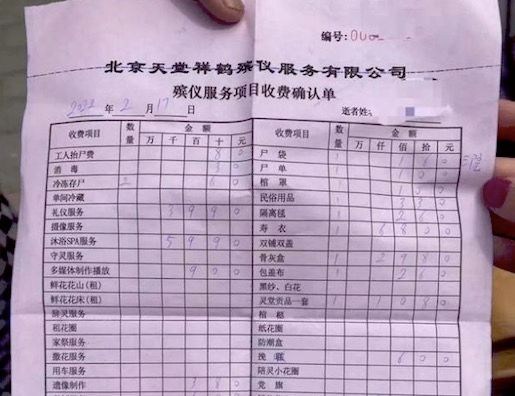 编号:
北京天堂祥鹤殡仪服务有限公司
殡仪服务项目收费确认单
2022 年 2 月 17 日 逝者姓
收费项目 数量 金额 万 千 百 十 元 收费项目 数量 金额 万 仟 佰 拾 元
工人抬尸费 8 0 尸袋 1 1 6 0
消毒 3 0 尸单 1 1 0 0
冷冻存尸 2 6 0 棺罩 1 1 0 0
单间冷藏 民俗用品 1 3 3 0
礼仪服务 3 9 9 0 隔离毯 1 2 6 0
摄像服务 寿衣 1 6 8 0 0
沐浴SPA服务 5 9 9 0 双铺双盖
守灵服务 骨灰盒 1 2 9 8 0
多媒体制作播放 9 0 0 包盖布 1 2 6 0
鲜花花山(租) 黑纱、白花
鲜花花床(租) 灵堂贡品一套 1 1 0 8 0
服务
租花圈 纸花圈
家祭服务 防潮盒
撒花服务 挽 6 0 0
用车服务 陪灵小花圈
遗像制作 3 8 0 党旗